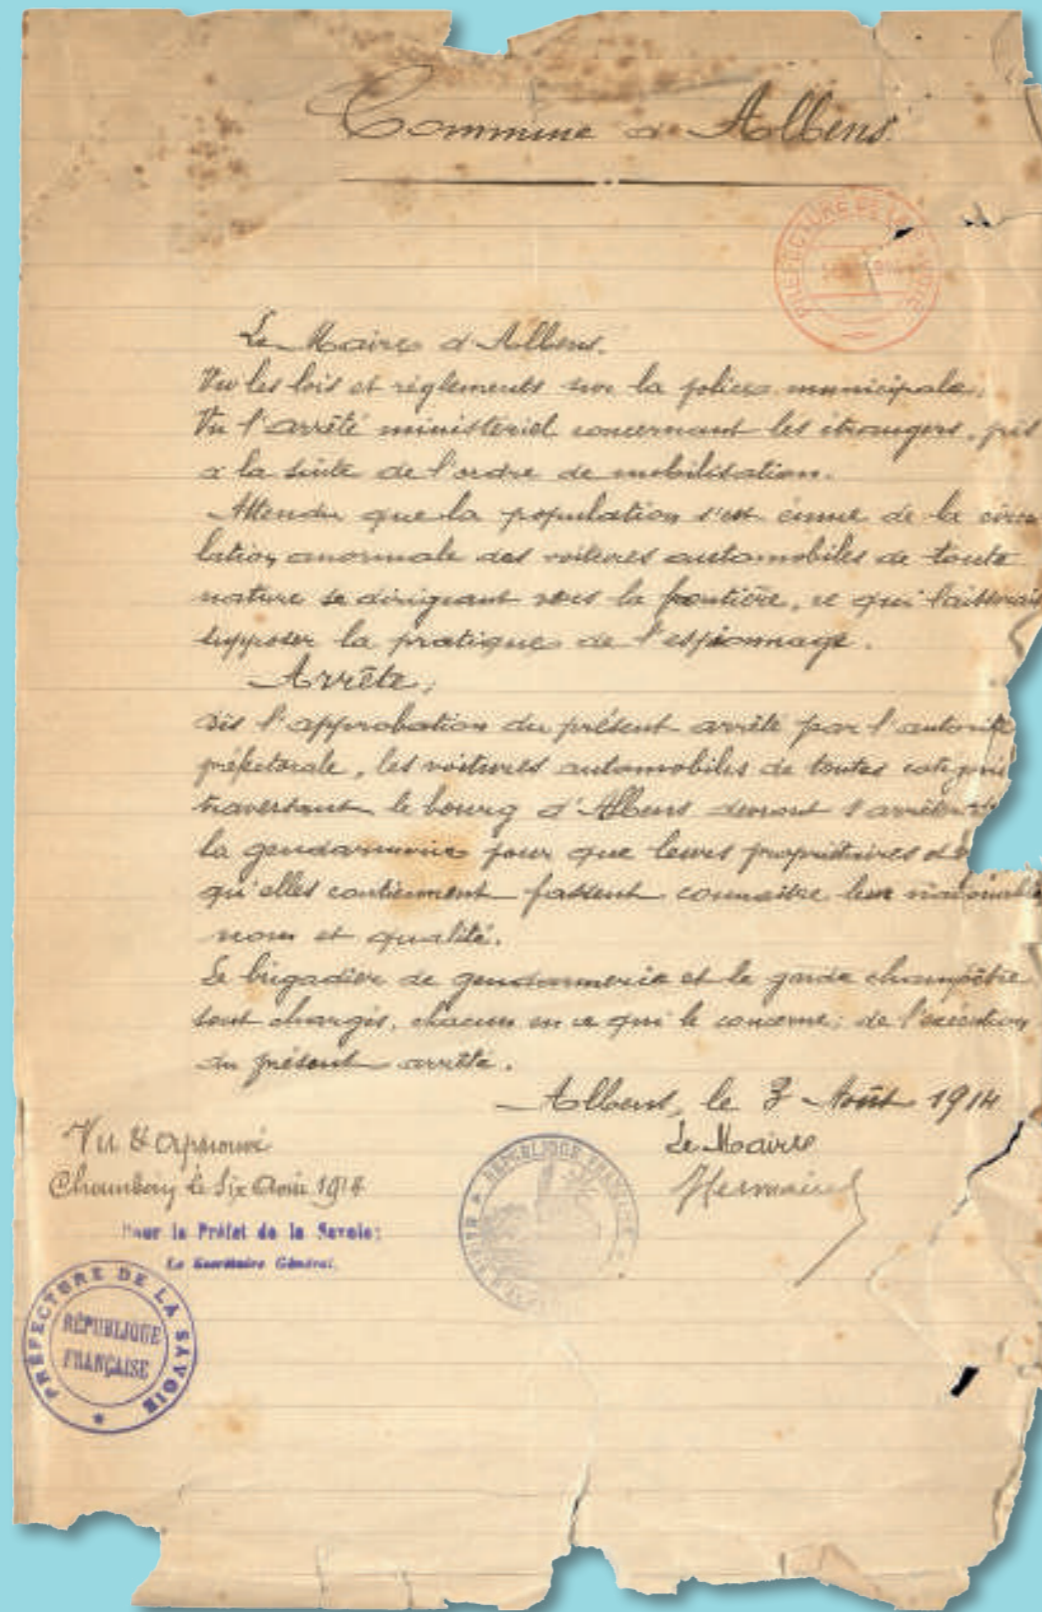 Commune d'Albens.
PRÉFECTURE DE LA SAVOIE
Le Maire d'Albens.
Vu les lois et règlements sur la police municipale.
Vu l'arrêté ministériel concernant les étrangers, pris
à la suite de l'ordre de mobilisation.
Attendu que la population s'est émue de la circu
lation anormale des voitures automobiles de toute
nature se dirigeant vers la frontière, ce qui laisserait
supposer la pratique de l'espionnage.
Arrête;
Dès l'approbation du présent arrêté par l'autorité
préfectorale, les voitures automobiles de toutes catégories
traversant le bourg d'Albens devront s'arrêter
la gendarmerie pour que leurs propriétaires
qu'elles contiennent fassent connaître leur nationalité
nom et qualité.
Le brigadier de gendarmerie et le garde champêtre
sont chargés, chacun en ce qui le concerne, de l'exécution
du présent arrêté.
Albens, le 3 Août 1914
Le Maire
Vu & Approuvé
Chambéry le Six Août 1914
Pour le Préfet de la Savoie:
Le Secrétaire Général.
RÉPUBLIQUE FRANÇAISE
PRÉFECTURE DE LA SAVOIE
RÉPUBLIQUE
FRANÇAISE